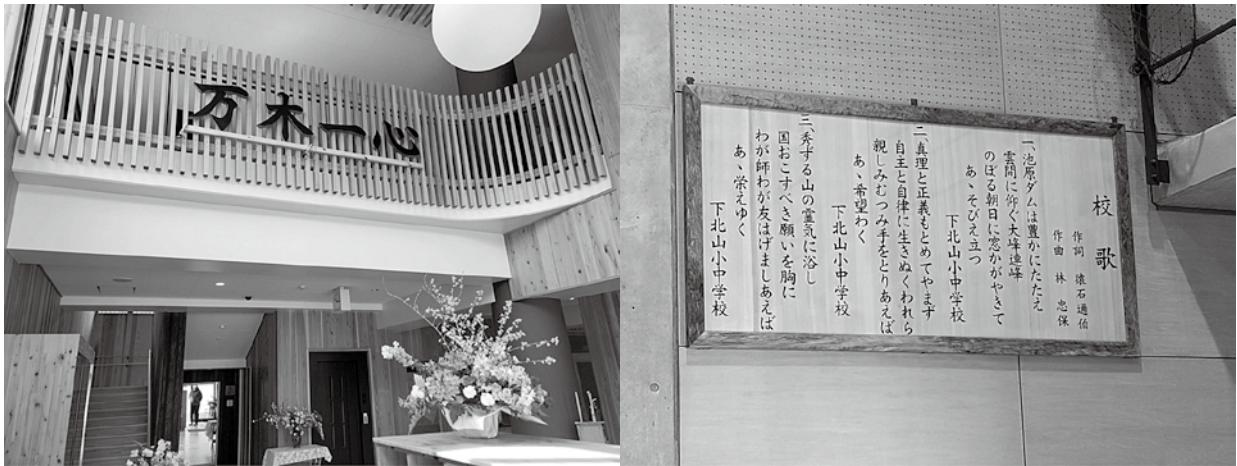 万木一心
校歌
作詞 懐石通伯
作曲 林 忠保
一、池原ダムは豊かにたたえ
雲間に仰ぐ大峰連峰
のぼる朝日に窓かがやきて
あゝそびえ立つ
下北山小中学校
二、真理と正義もとめてやまず
自主と自律に生きぬくわれら
親しみむつみ手をとりあえば
あゝ希望わく
下北山小中学校
三、秀ずる山の霊気に浴し
国おこすべき願いを胸に
わが師わが友はげましあえば
あゝ栄えゆく
下北山小中学校